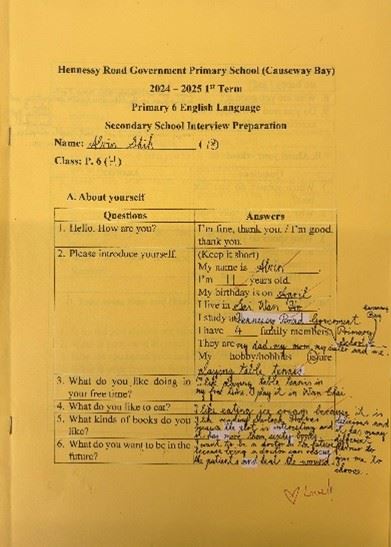 Hennessy Road Government Primary School (Causeway Bay)
2024 – 2025 1st Term
Primary 6 English Language
Secondary School Interview Preparation
Name: Alvin Shih
Class: P. 6
A. About yourself
Questions
Answers
1. Hello. How are you?
I'm fine, thank you. / I'm good,
thank you.
2. Please introduce yourself.
(Keep it short)
My name is Alvin.
I'm 11 years old.
My birthday is on April
I live in Sai Wan Ho
I study in Hennessy Road Government
Primary
I have 4 family members.
They are my dad, my mom, my sister and me.
My hobby/hobbies is/are
playing table tennis
3. What do you like doing in
your free time?
I like playing table tennis in
my free time. I play it in Wan Chai.
4. What do you like to eat?
I like eating ice cream because it is
delicious and
5. What kinds of books do you
like?
the plot is interesting and it has many
different
6. What do you want to be in the
future?
I want to be a doctor in the future
because being a doctor can rescue
the patients and heal the wound.
give me to
choose.